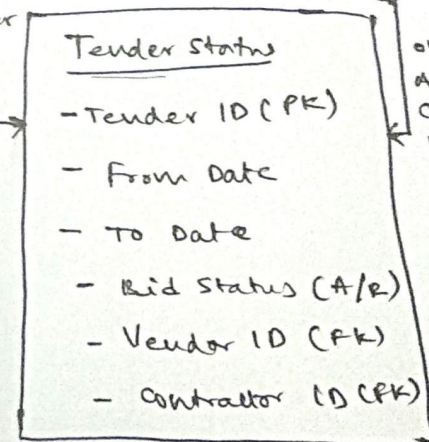 Tender Status
- Tender ID (PK)
- From Date
- To Date
- Bid Status (A/R)
- Vendor ID (FK)
- Contractor ID (FK)